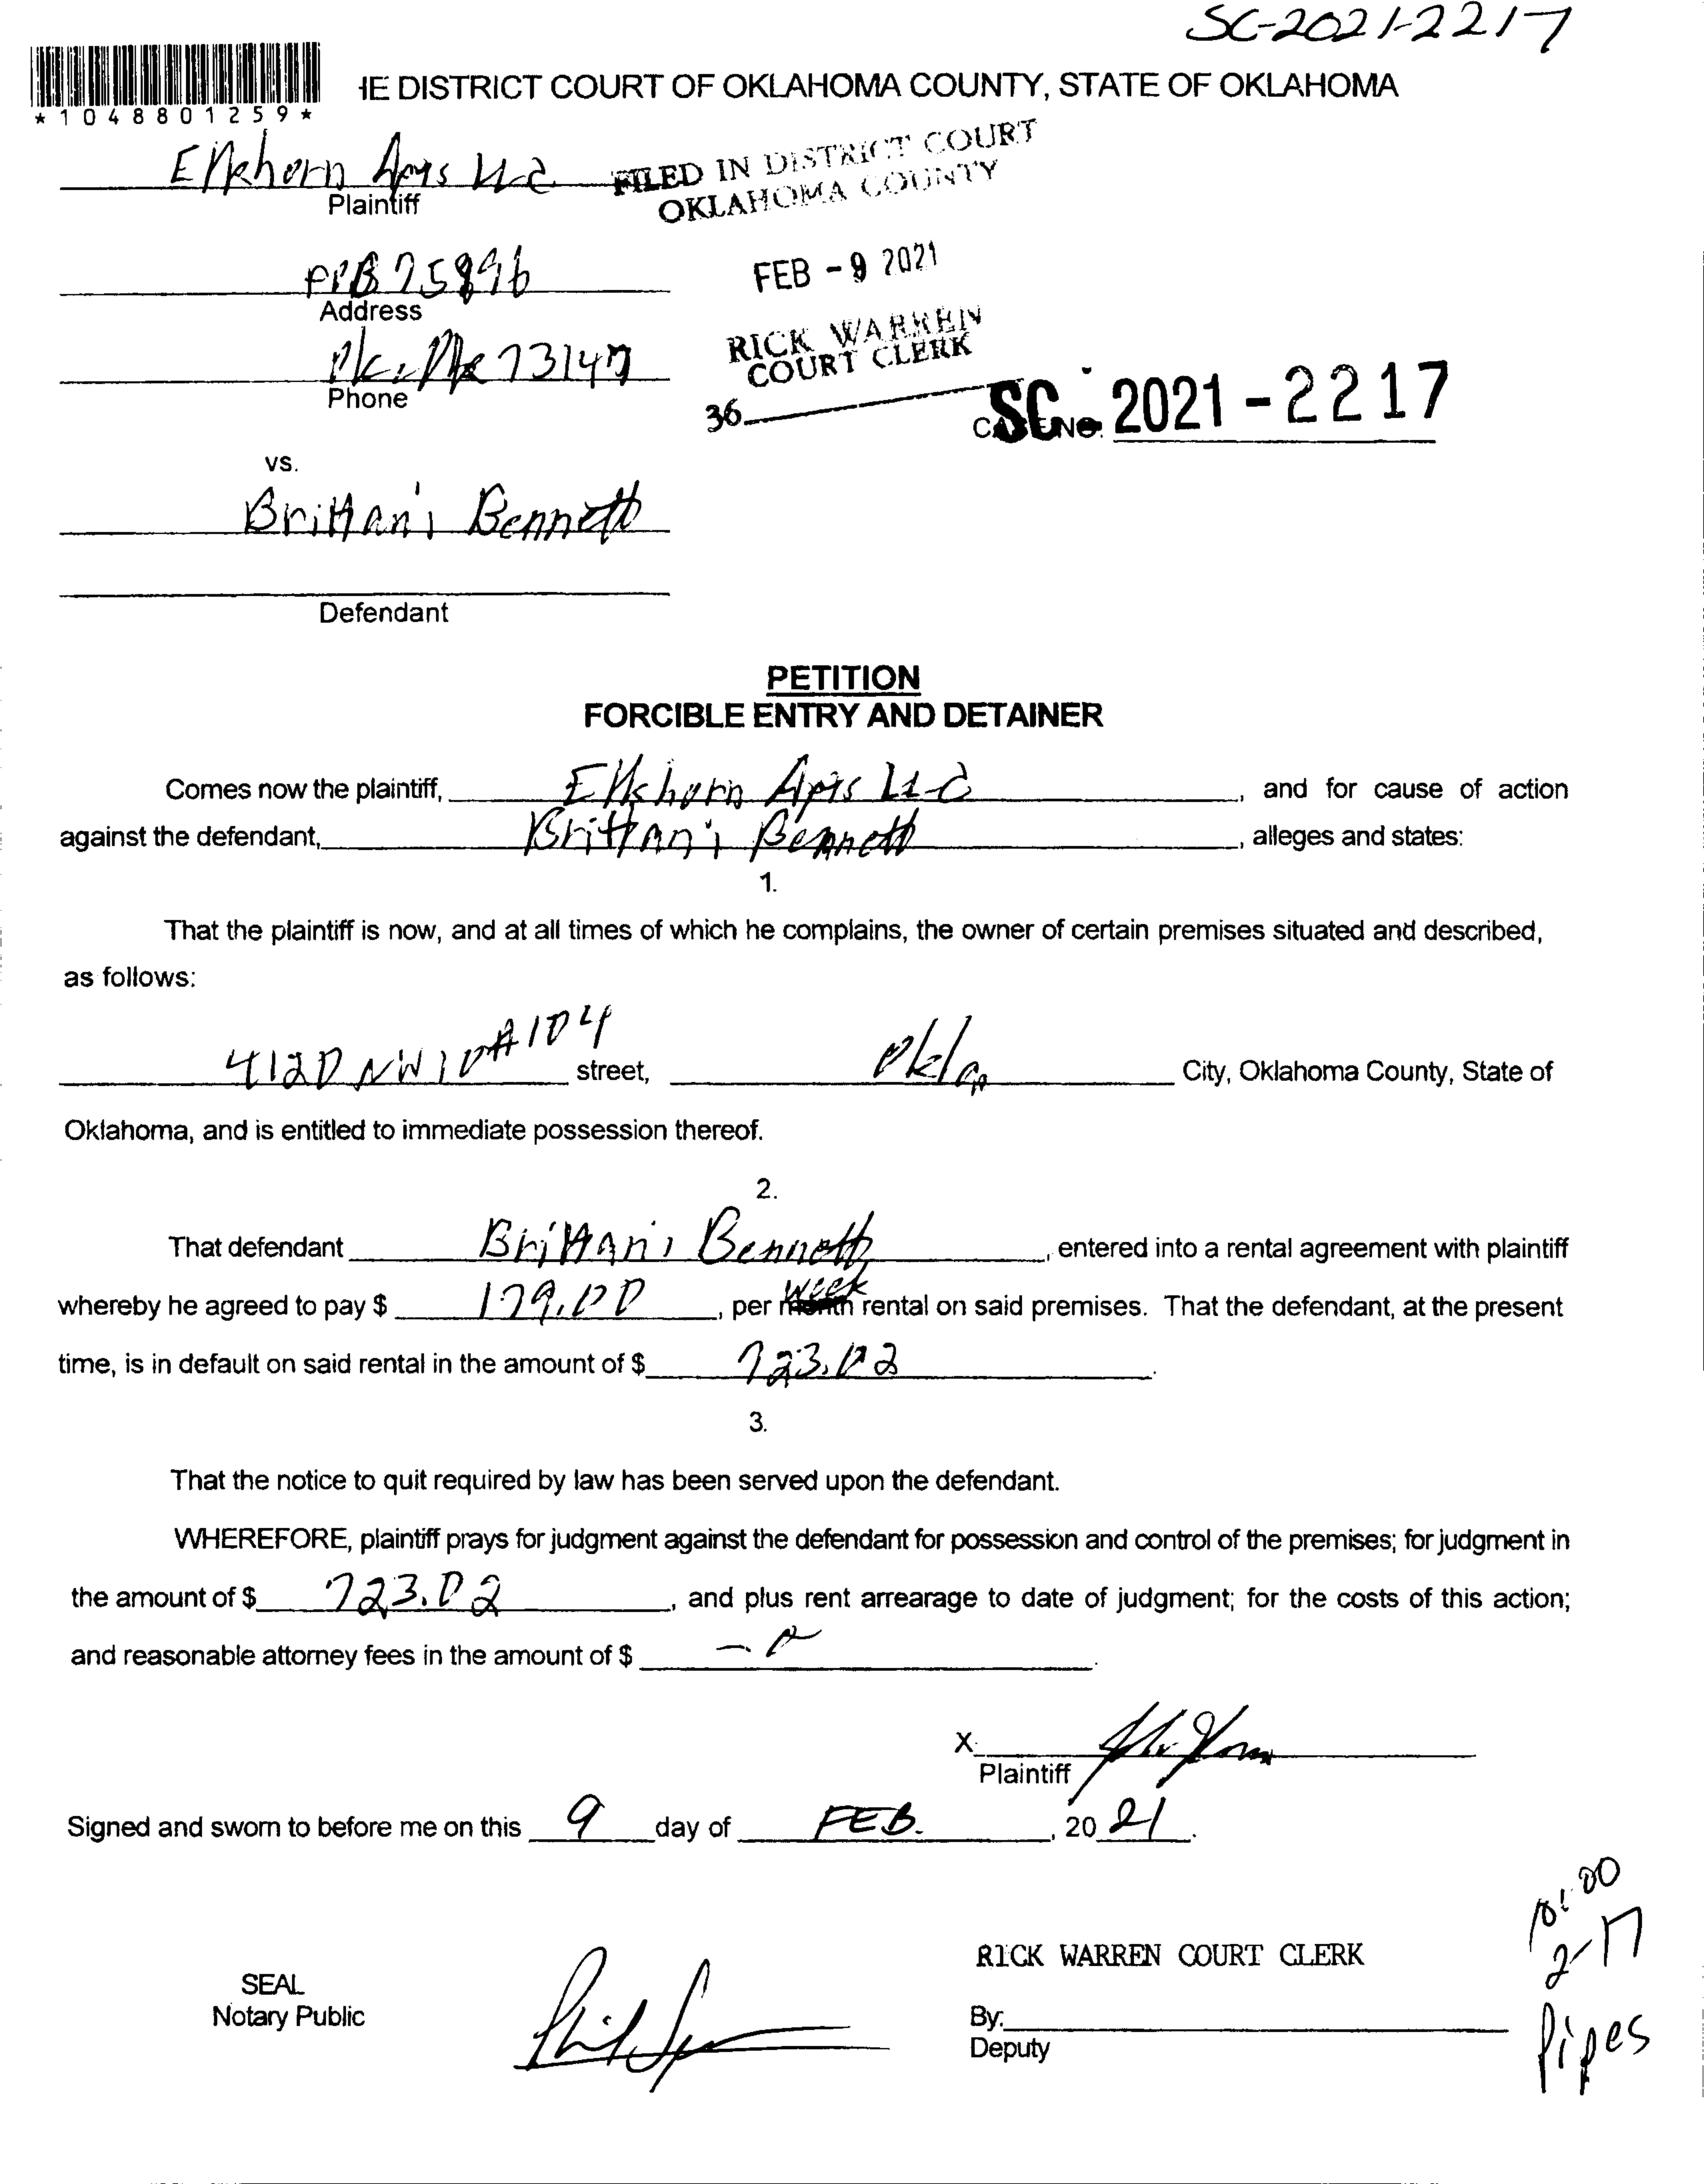 SC-2021-2217
*1048801259*
HE DISTRICT COURT OF OKLAHOMA COUNTY, STATE OF OKLAHOMA
Elkhorn Apts LLC
Plaintiff
FILED IN DISTRICT COURT
OKLAHOMA COUNTY
POB 75896
Address
FEB - 9 2021
73147
Phone
RICK WARREN
COURT CLERK
36
CASE NO. SC - 2021 - 2217
vs.
Brittani Bennett
Defendant
PETITION
FORCIBLE ENTRY AND DETAINER
Comes now the plaintiff, Elkhorn Apts LLC, and for cause of action
against the defendant, Brittani Bennett, alleges and states:
1.
That the plaintiff is now, and at all times of which he complains, the owner of certain premises situated and described,
as follows:
4120 NW 10 #104 street, Okla City, Oklahoma County, State of
Oklahoma, and is entitled to immediate possession thereof.
2.
That defendant Brittani Bennett, entered into a rental agreement with plaintiff
whereby he agreed to pay $ 179.00, per month week rental on said premises. That the defendant, at the present
time, is in default on said rental in the amount of $ 723.02.
3.
That the notice to quit required by law has been served upon the defendant.
WHEREFORE, plaintiff prays for judgment against the defendant for possession and control of the premises; for judgment in
the amount of $ 723.02, and plus rent arrearage to date of judgment; for the costs of this action;
and reasonable attorney fees in the amount of $
X
Plaintiff
Signed and sworn to before me on this 9 day of FEB., 20 21.
10:00
2-17
Pipes
RICK WARREN COURT CLERK
SEAL
Notary Public
By:
Deputy